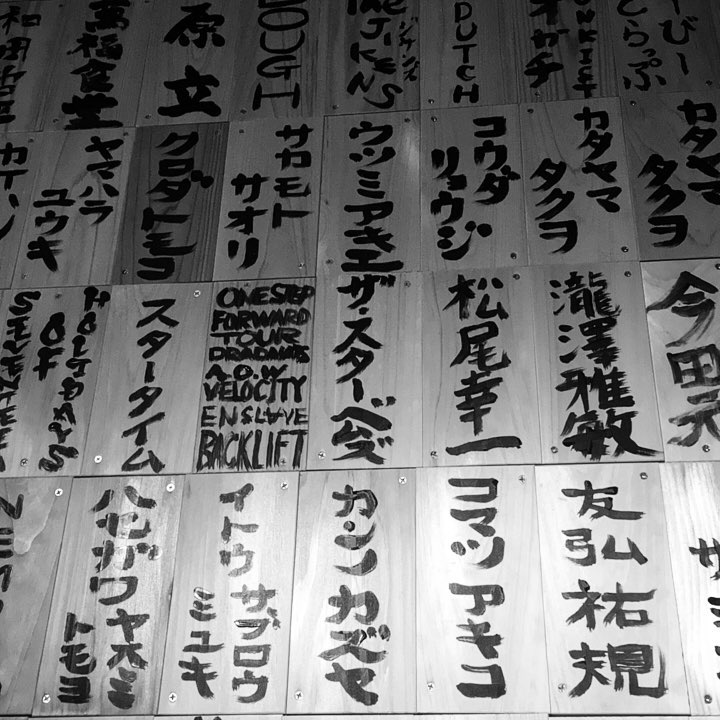 とらっぷ
オガチ
DUTCH
ジケンズ
JIKENS
原立
萬福食堂
カタヤマ
タクヲ
カタヤマ
タクヲ
コウダ
リョウジ
ウツミアキエ
サカモト
サオリ
クロダトモヨ
ヤマハラ
ユウキ
今田元
瀧澤雅敏
松尾幸一
ザ・スターベムズ
ONESTEP
FORWARD
TOUR
DRADNATS
A.O.W
VELOCITY
ENSLAVE
BACKLIFT
スタータイム
HOLIDAYS
OF
SEVENTEEN
友弘祐規
コマツアキコ
カンノカズヤ
イトウ
サブロウ
ミユキ
ハセガワヤスミ
トモヨ